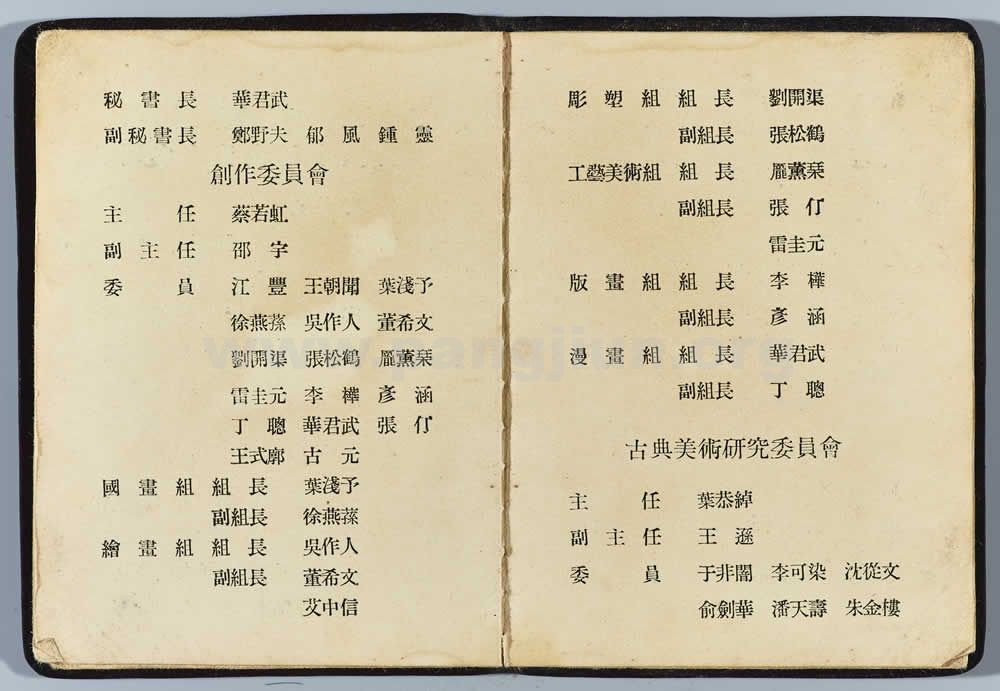 秘書長 華君武
副秘書長 鄭野夫 郁風 鍾靈
創作委員會
主任 蔡若虹
副主任 邵宇
委員 江豐 王朝聞 葉淺予
徐燕蓀 吳作人 董希文
劉開渠 張松鶴 龎薰琹
雷圭元 李樺 彥涵
丁聰 華君武 張仃
王式廓 古元
國畫組組長 葉淺予
副組長 徐燕蓀
繪畫組組長 吳作人
副組長 董希文
艾中信
彫塑組組長 劉開渠
副組長 張松鶴
工藝美術組組長 龎薰琹
副組長 張仃
雷圭元
版畫組組長 李樺
副組長 彥涵
漫畫組組長 華君武
副組長 丁聰
古典美術研究委員會
主任 葉恭綽
副主任 王遜
委員 于非闇 李可染 沈從文
俞劍華 潘天壽 朱金樓
www.pangjiun.org